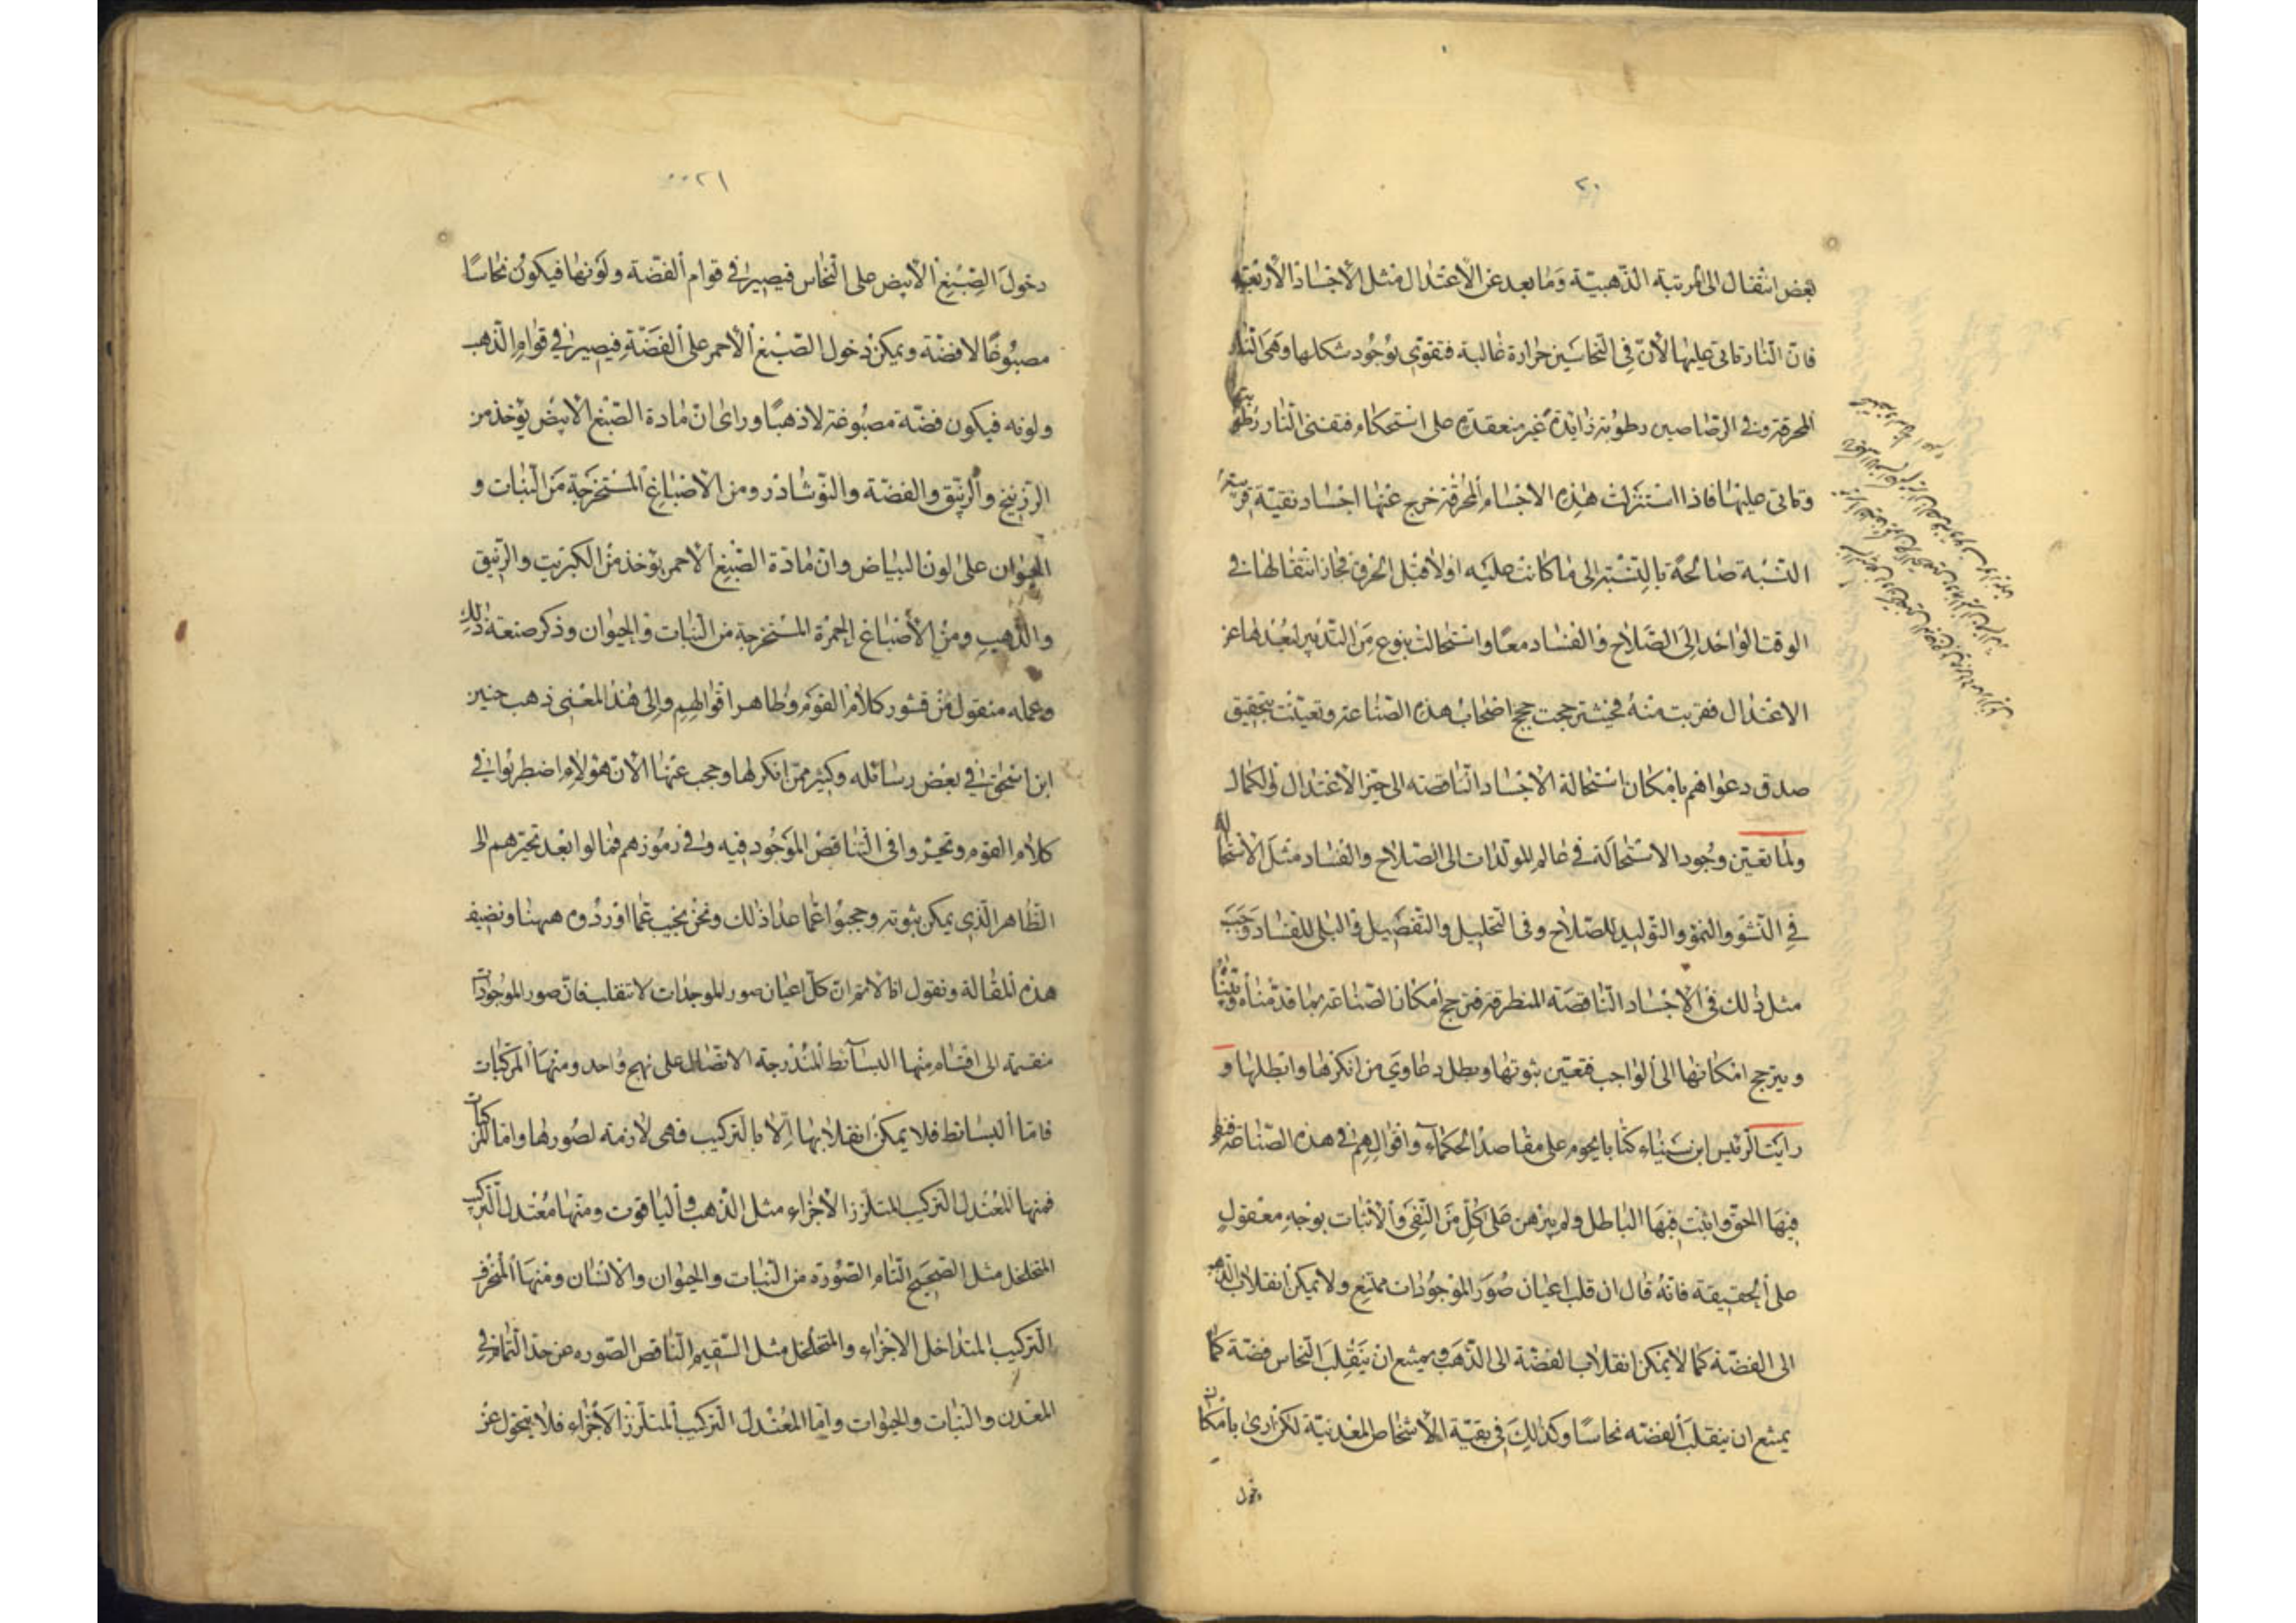 ٢٠
بعض انتقال الى المرتبة الذهبية وما بعد عن الاعتدال مثل الاجساد الاربعة
فان النار تاتي عليها لان في النحاسين حرارة غالبة فتقوى بوجود شكلها وهي النار
المحرقة وفي الرصاصين رطوبة زايدة غير منعقدة على استحكام فتفنى النار رطوبتها
وتاتي عليها فاذا استنزلت هذه الاجسام المحرقة خرج عنها اجساد نقية قريبة
النسبة صالحة بالنسبة الى ما كانت عليه اولا قبل الحرق فجاز انتقالها في
الوقت الواحد الى الصلاح والفساد معا واستحالت بنوع من التدبير لبعدها عن
الاعتدال فقربت منه فحينئذ رجحت حجج اصحاب هذه الصناعة وتعينت بتحقيق
صدق دعواهم بامكان استحالة الاجساد الناقصة الى حيز الاعتدال والكمال
ولما تعين وجود الاستحالة في عالم المولدات الى الصلاح والفساد مثل الاستحالة
في النشو والنمو والتوليد للصلاح وفي التحليل والتفصيل والبلى للفساد وجب
مثل ذلك في الاجساد الناقصة المنطرقة فترجح امكان الصناعة بما قدمناه وبيناه
ويترجح امكانها الى الواجب فتعين ثبوتها وبطل دعاوي من انكرها وابطلها و
رايت الرئيس ابن سيناء كتابا يحوم على مقاصد الحكماء واقوالهم في هذه الصناعة فنفى
فيها الحق واثبت فيها الباطل ولم يبرهن على كل من النفي والاثبات بوجه معقول
على الحقيقة فانه قال ان قلب اعيان صور الموجودات ممتنع ولا يمكن انقلاب الذهب
الى الفضة كما لا يمكن انقلاب الفضة الى الذهب ويمتنع ان ينقلب النحاس فضة كما
يمتنع ان ينقلب الفضه نحاسا وكذلك في بقية الاشخاص المعدنية لكن ارى بامكان
دخول
٢١
دخول الصبغ الابيض على النحاس فيصير في قوام الفضة ولونها فيكون نحاسا
مصبوغا لا فضة ويمكن دخول الصبغ الاحمر على الفضة فيصير في قوام الذهب
ولونه فيكون فضة مصبوغة لا ذهبا وراى ان مادة الصبغ الابيض يؤخذ من
الزرنيخ والزيبق والفضة والنوشادر ومن الاصباغ المستخرجة من النبات و
الحيوان على لون البياض وان مادة الصبغ الاحمر يؤخذ من الكبريت والزيبق
والذهب ومن الاصباغ الحمرة المستخرجة من النبات والحيوان وذكر صنعة ذلك
وعمله منقول من قشور كلام القوم وظاهر اقوالهم والى هذا المعنى ذهب حنين
ابن اسحق في بعض رسائله وكثير ممن انكرها وحجب عنها الان هولاء اضطربوا في
كلام القوم وتحيروا في التناقض الموجود فيه وفي رموزهم فمالوا بعد تحيرهم الى
الظاهر الذي يمكن ثبوته وحجبوا عما عدا ذلك ونحن نجيب عما اوردوه ههنا ونضيف
هذه المقالة ونقول انا لا نتم ان كل اعيان صور الموجدات لا تنقلب فان صور الموجودات
منقسمة الى اقسام منها البسائط المندرجة الاتصال على نهج واحد ومنها المركبات
فاما البسائط فلا يمكن انقلابها الا بالتركيب فهي لازمة لصورها واما المركبات
فمنها المعتدل التركيب المتلزز الاجزاء مثل الذهب والياقوت ومنها معتدل التركيب
المتخلخل مثل الصحيح التام الصورة من النبات والحيوان والانسان ومنها المنحرف
التركيب المتداخل الاجزاء والمتخلخل مثل السقيم الناقص الصوره عن حد التمام في
المعدن والنبات والحيوات واما المعتدل التركيب المتلزز الاجزاء فلا يتحول عن